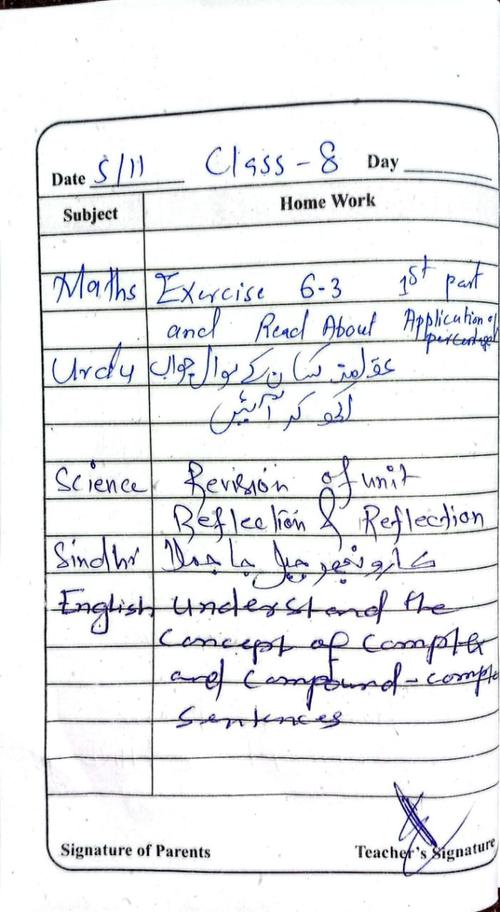 Date 5/11 Class - 8 Day
Subject Home Work
Maths Exercise 6-3 1st part
and Read About Application of percentage
Urdu عقلمند کسان کے سوال جواب
لکھ کر آئیں
Science Revision of unit
Reflection & Reflection
Sindhi جا جملا
English Understand the
Concept of Complex
and Compound-comple
Sentences
Signature of Parents Teacher's Signature